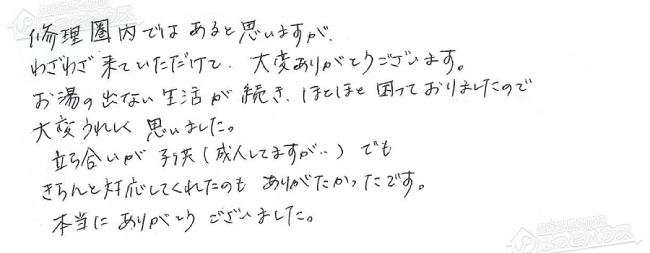 修理圏内ではあると思いますが、
わざわざ来ていただけて、大変ありがとうございます。
お湯の出ない生活が続き、ほとほと困っておりましたので
大変うれしく思いました。
立ち合いが子供(成人してますが‥)でも
きちんと対応してくれたのもありがたかったです。
本当にありがとうございました。